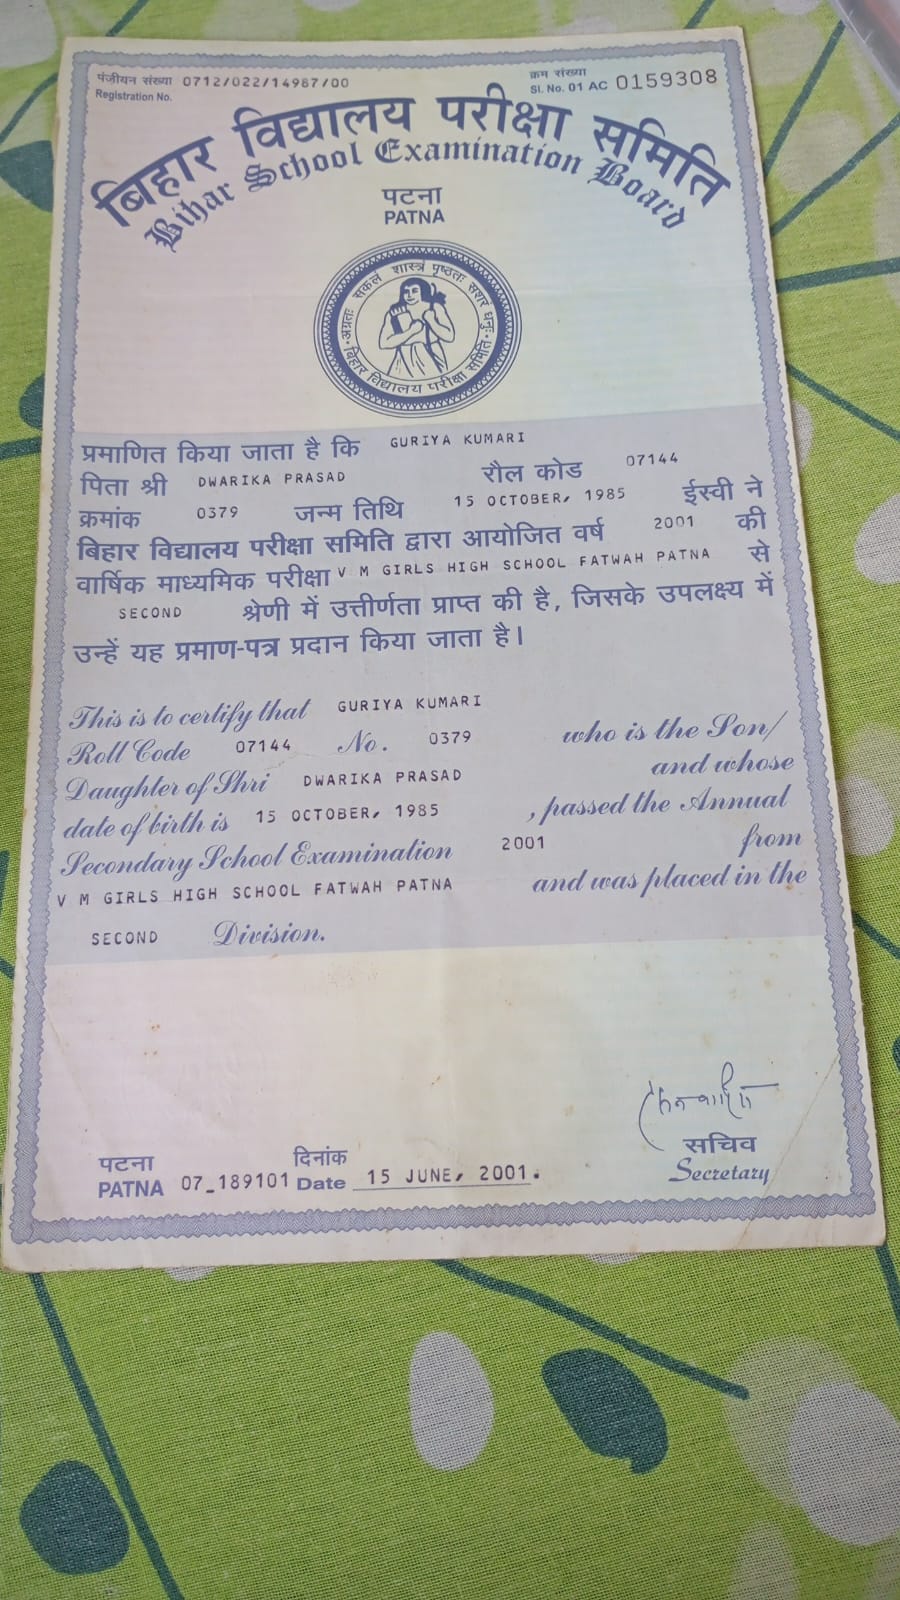 पंजीयन संख्या 0712/022/14987/00
Registration No.
क्रम संख्या
Sl. No. 01 AC 0159308
बिहार विद्यालय परीक्षा समिति
Bihar School Examination Board
पटना
PATNA
अग्रतः सकलं शास्त्रं पृष्ठतः सशरं धनुः
बिहार विद्यालय परीक्षा समिति
प्रमाणित किया जाता है कि GURIYA KUMARI
पिता श्री DWARIKA PRASAD रौल कोड 07144
क्रमांक 0379 जन्म तिथि 15 OCTOBER, 1985 ईस्वी ने
बिहार विद्यालय परीक्षा समिति द्वारा आयोजित वर्ष 2001 की
वार्षिक माध्यमिक परीक्षा V M GIRLS HIGH SCHOOL FATWAH PATNA से
SECOND श्रेणी में उत्तीर्णता प्राप्त की है, जिसके उपलक्ष्य में
उन्हें यह प्रमाण-पत्र प्रदान किया जाता है।
This is to certify that GURIYA KUMARI
Roll Code 07144 No. 0379 who is the Son/
Daughter of Shri DWARIKA PRASAD and whose
date of birth is 15 OCTOBER, 1985 , passed the Annual
Secondary School Examination 2001 from
V M GIRLS HIGH SCHOOL FATWAH PATNA and was placed in the
SECOND Division.
सचिव
Secretary
पटना दिनांक
PATNA 07_189101 Date 15 JUNE, 2001.